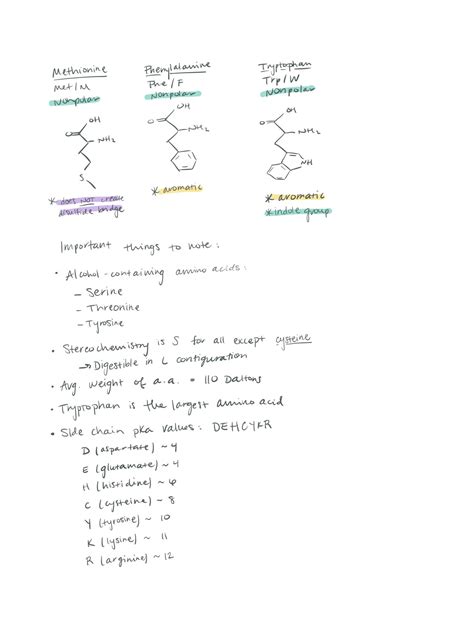 Methionine
Met/M
Nonpolar
OH
O
NH2
S
* does NOT create
disulfide bridge
Phenylalanine
Phe/F
Nonpolar
OH
O
NH2
* aromatic
Tryptophan
Trp/W
Nonpolar
OH
O
NH2
NH
* aromatic
* indole group
Important things to note:
• Alcohol-containing amino acids:
– Serine
– Threonine
– Tyrosine
• Stereochemistry is S for all except cysteine
→ Digestible in L configuration
• Avg. weight of a.a. = 110 Daltons
• Tryptophan is the largest amino acid
• Side chain pka values: DEHCYKR
D (aspartate) ~ 4
E (glutamate) ~ 4
H (histidine) ~ 6
C (cysteine) ~ 8
Y (tyrosine) ~ 10
K (lysine) ~ 11
R (arginine) ~ 12